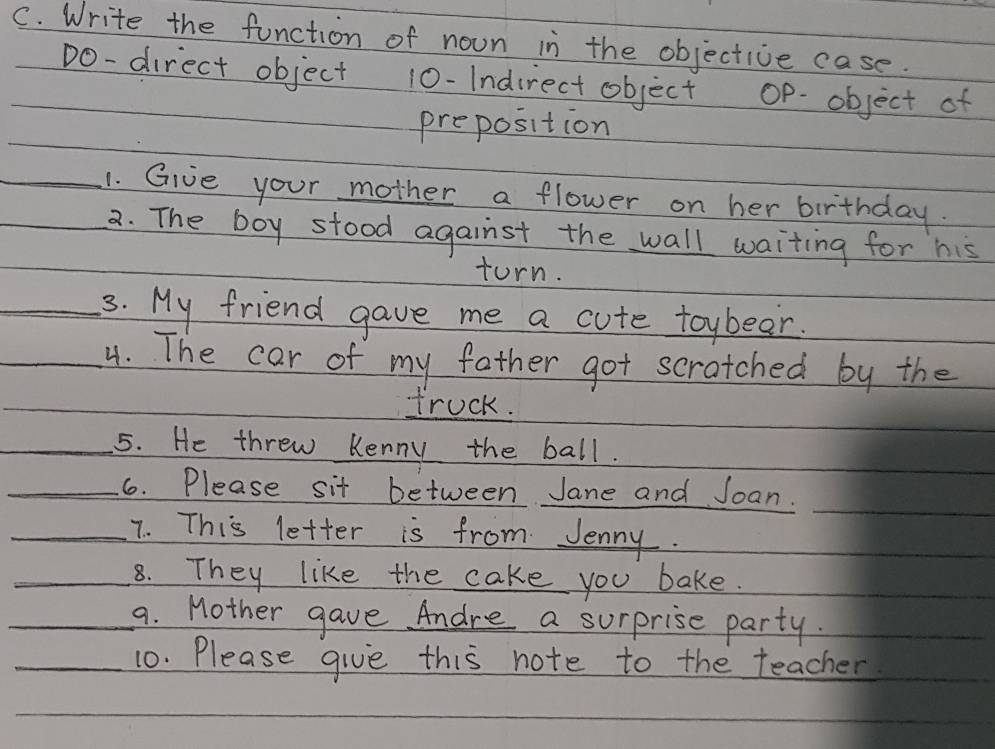 C. Write the function of noun in the objective case.
DO - direct object 10 - Indirect object OP - object of
preposition
1. Give your mother a flower on her birthday.
2. The boy stood against the wall waiting for his
turn.
3. My friend gave me a cute toybear.
4. The car of my father got scratched by the
truck.
5. He threw Kenny the ball.
6. Please sit between Jane and Joan.
7. This letter is from Jenny.
8. They like the cake you bake.
9. Mother gave Andre a surprise party.
10. Please give this note to the teacher.